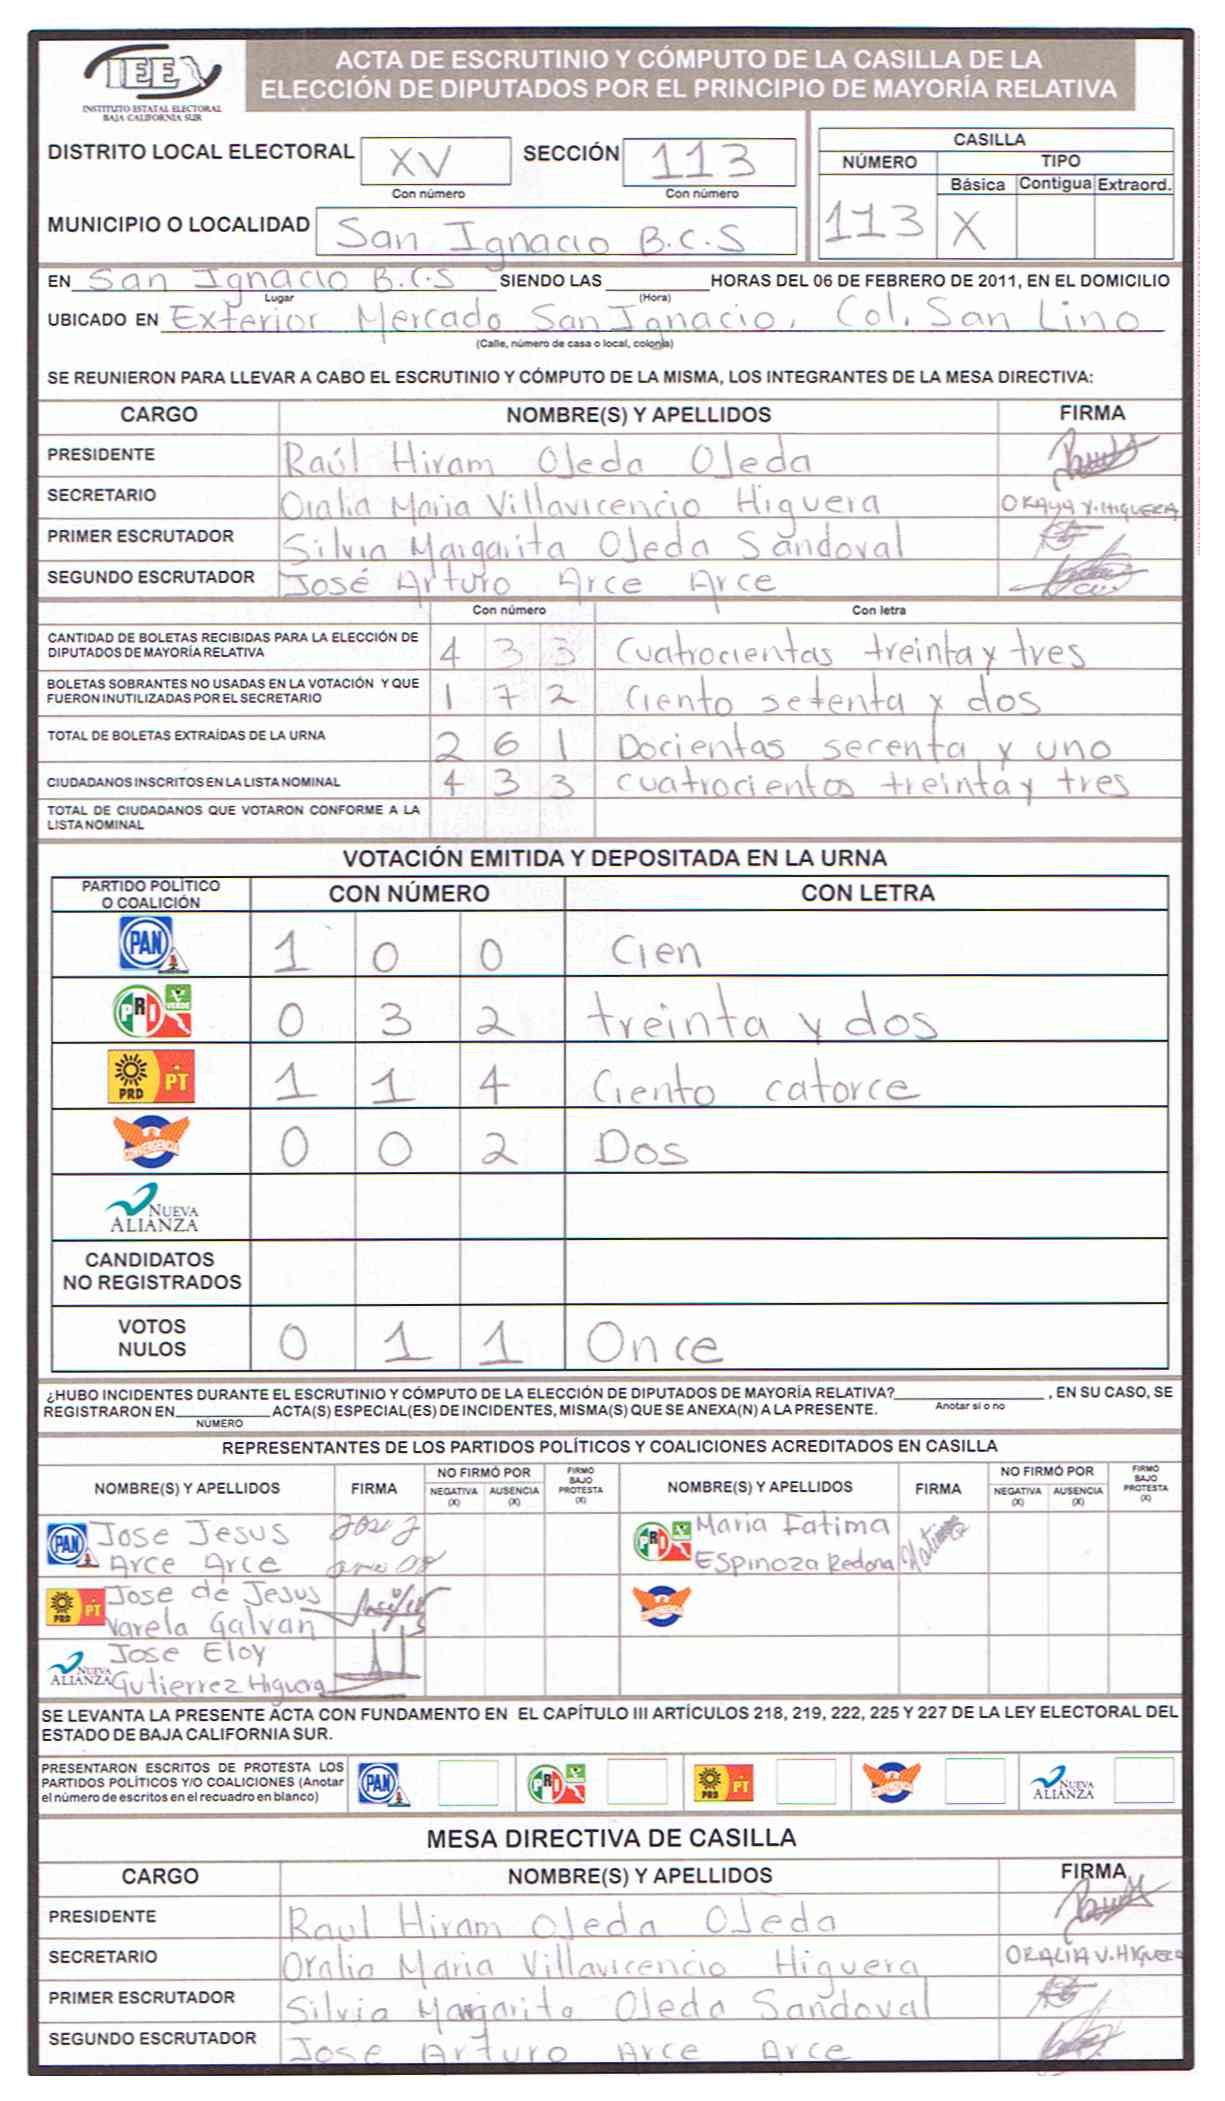 IEE
INSTITUTO ESTATAL ELECTORAL
BAJA CALIFORNIA SUR
ACTA DE ESCRUTINIO Y CÓMPUTO DE LA CASILLA DE LA
ELECCIÓN DE DIPUTADOS POR EL PRINCIPIO DE MAYORÍA RELATIVA
DISTRITO LOCAL ELECTORAL XV SECCIÓN 113
Con número Con número
MUNICIPIO O LOCALIDAD San Ignacio B.C.S
CASILLA
NÚMERO TIPO
Básica Contigua Extraord.
113 X
EN San Ignacio B.C.S SIENDO LAS HORAS DEL 06 DE FEBRERO DE 2011, EN EL DOMICILIO
Lugar (Hora)
UBICADO EN Exterior Mercado San Ignacio, Col. San Lino
(Calle, número de casa o local, colonia)
SE REUNIERON PARA LLEVAR A CABO EL ESCRUTINIO Y CÓMPUTO DE LA MISMA, LOS INTEGRANTES DE LA MESA DIRECTIVA:
CARGO NOMBRE(S) Y APELLIDOS FIRMA
PRESIDENTE Raúl Hiram Ojeda Ojeda
SECRETARIO Oralia Maria Villavicencio Higuera
PRIMER ESCRUTADOR Silvia Margarita Ojeda Sandoval
SEGUNDO ESCRUTADOR José Arturo Arce Arce
Con número Con letra
CANTIDAD DE BOLETAS RECIBIDAS PARA LA ELECCIÓN DE
DIPUTADOS DE MAYORÍA RELATIVA 4 3 3 Cuatrocientas treinta y tres
BOLETAS SOBRANTES NO USADAS EN LA VOTACIÓN Y QUE
FUERON INUTILIZADAS POR EL SECRETARIO 1 7 2 Ciento setenta y dos
TOTAL DE BOLETAS EXTRAÍDAS DE LA URNA 2 6 1 Docientas secenta y uno
CIUDADANOS INSCRITOS EN LA LISTA NOMINAL 4 3 3 cuatrocientos treinta y tres
TOTAL DE CIUDADANOS QUE VOTARON CONFORME A LA
LISTA NOMINAL
VOTACIÓN EMITIDA Y DEPOSITADA EN LA URNA
PARTIDO POLÍTICO
O COALICIÓN CON NÚMERO CON LETRA
PAN 1 0 0 Cien
PRI VERDE 0 3 2 treinta y dos
PRD PT 1 1 4 Ciento catorce
CONVERGENCIA 0 0 2 Dos
NUEVA
ALIANZA
CANDIDATOS
NO REGISTRADOS
VOTOS
NULOS 0 1 1 Once
¿HUBO INCIDENTES DURANTE EL ESCRUTINIO Y CÓMPUTO DE LA ELECCIÓN DE DIPUTADOS DE MAYORÍA RELATIVA? , EN SU CASO, SE
Anotar si o no
REGISTRARON EN ACTA(S) ESPECIAL(ES) DE INCIDENTES, MISMA(S) QUE SE ANEXA(N) A LA PRESENTE.
NÚMERO
REPRESENTANTES DE LOS PARTIDOS POLÍTICOS Y COALICIONES ACREDITADOS EN CASILLA
NOMBRE(S) Y APELLIDOS FIRMA NO FIRMÓ POR FIRMÓ BAJO PROTESTA (X) NOMBRE(S) Y APELLIDOS FIRMA NO FIRMÓ POR FIRMÓ BAJO PROTESTA (X)
NEGATIVA (X) AUSENCIA (X) NEGATIVA (X) AUSENCIA (X)
PAN Jose Jesus PRI Maria Fatima
Arce Arce Espinoza Redona
PRD PT Jose de Jesus
Varela Galvan
NUEVA ALIANZA Jose Eloy
Gutierrez Higuera
SE LEVANTA LA PRESENTE ACTA CON FUNDAMENTO EN EL CAPÍTULO III ARTÍCULOS 218, 219, 222, 225 Y 227 DE LA LEY ELECTORAL DEL
ESTADO DE BAJA CALIFORNIA SUR.
PRESENTARON ESCRITOS DE PROTESTA LOS
PARTIDOS POLÍTICOS Y/O COALICIONES (Anotar
el número de escritos en el recuadro en blanco) PAN PRI PRD PT NUEVA ALIANZA
MESA DIRECTIVA DE CASILLA
CARGO NOMBRE(S) Y APELLIDOS FIRMA
PRESIDENTE Raul Hiram Ojeda Ojeda
SECRETARIO Oralia Maria Villavicencio Higuera ORALIA V. HIGUERA
PRIMER ESCRUTADOR Silvia Margarita Ojeda Sandoval
SEGUNDO ESCRUTADOR Jose Arturo Arce Arce